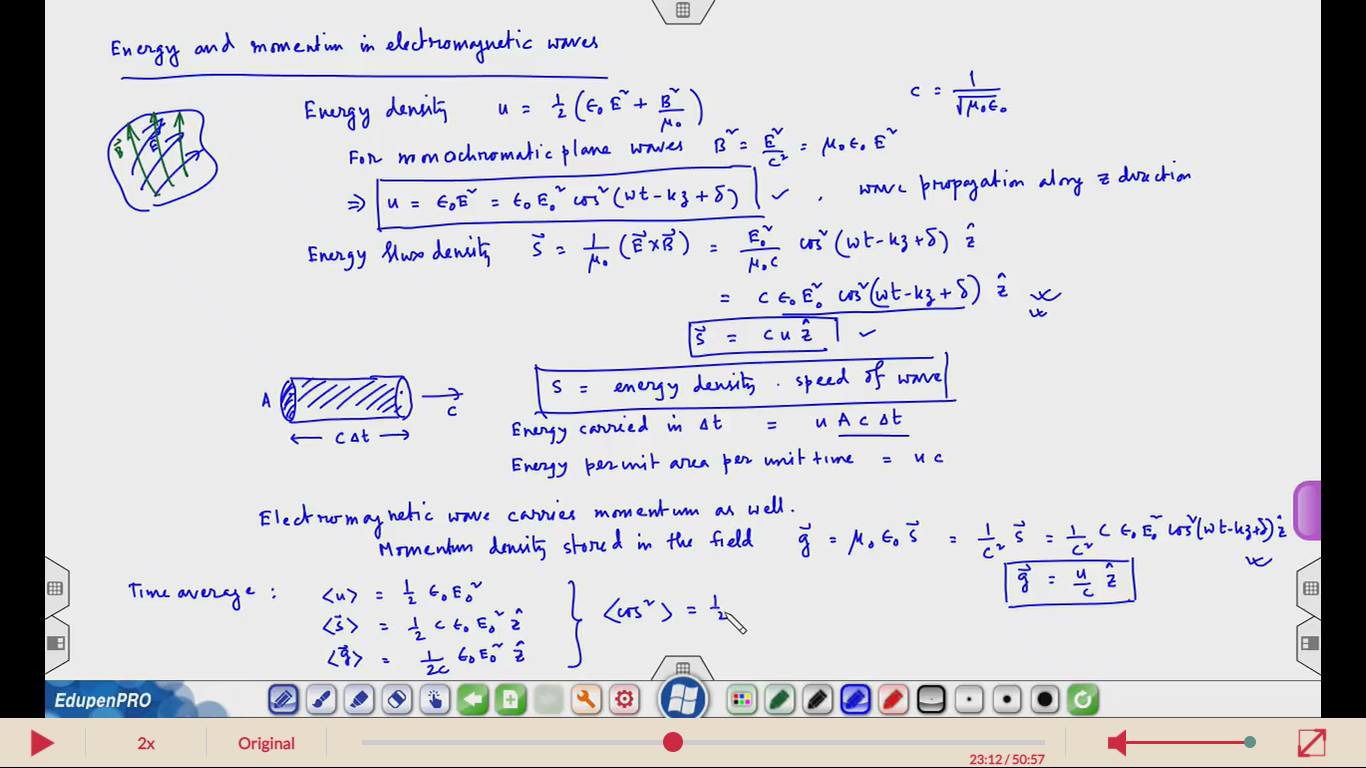 Energy and momentum in electromagnetic waves
Energy density u = ½ (ϵ₀ E² + B²/μ₀)
c = 1/√μ₀ϵ₀
B⃗ E
For monochromatic plane waves B² = E²/c² = μ₀ ϵ₀ E²
⇒ u = ϵ₀E² = ϵ₀ E₀² cos²(ωt-kz+δ) ✓ , wave propagation along z direction
Energy flux density S⃗ = 1/μ₀ (E⃗×B⃗) = E₀²/μ₀c cos²(ωt-kz+δ) ẑ
= c ϵ₀ E₀² cos²(ωt-kz+δ) ẑ
S⃗ = c u ẑ ✓
S = energy density . speed of wave
A c
← c Δt →
Energy carried in Δt = u A c Δt
Energy per unit area per unit time = u c
Electromagnetic wave carries momentum as well.
Momentum density stored in the field g⃗ = μ₀ ϵ₀ S⃗ = 1/c² S⃗ = 1/c² c ϵ₀ E₀² cos²(ωt-kz+δ) ẑ
g⃗ = u/c ẑ
Time average : <u> = ½ ϵ₀E₀²
<S⃗> = ½ c ϵ₀ E₀² ẑ
<g⃗> = 1/2c ϵ₀E₀² ẑ
} <cos²> = ½
EdupenPRO
2x Original 23:12 / 50:57